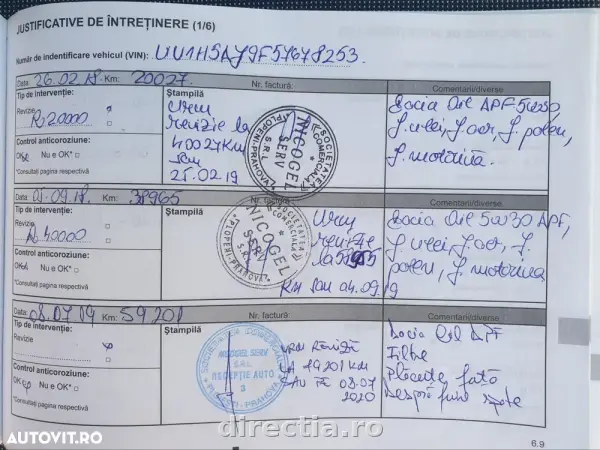 JUSTIFICATIVE DE ÎNTREȚINERE (1/6)
Număr de indentificare vehicul (VIN): UU1HSAJ9F57678253.
Data: 26.02.18. Km: 20027.
Nr. factură
Comentarii/diverse
Tip de intervenție:
Ștampilă
Revizie
R 20000
Control anticoroziune:
OK Nu e OK*
*Consultați pagina respectivă
Urm
revizie la
40027Km
sau
25.02.19
SOCIETATEA COMERCIALĂ
NICOGEL
SERV
S.R.L.
*PLOPENI-PRAHOVA*
Dacia Oil APF 5w30
f. ulei, f. aer, f. polen,
f. motorină.
Data: 05.09.18. Km: 38965
Nr. factură
Comentarii/diverse
Tip de intervenție:
Ștampilă
Revizie
R 40000
Control anticoroziune:
OK Nu e OK*
*Consultați pagina respectivă
SOCIETATEA COMERCIALĂ
NICOGEL
SERV
S.R.L.
*PLOPENI-PRAHOVA*
Urm
revizie
la
Km sau 04.09.19
Dacia Oil 5w30 APF,
f. ulei, f. aer, f.
polen, f. motorina
Data: 08.07.19 Km: 59201
Nr. factură
Comentarii/diverse
Tip de intervenție:
Ștampilă
Revizie
Control anticoroziune:
OK Nu e OK*
*Consultați pagina respectivă
NICOGEL SERV
S.R.L.
RECEPȚIE AUTO
3
URM REVIZIE
LA 79201 KM
SAU PE 08.07
2020
Dacia Oil APF
Filtre
Plăcuțe față
spate
6.9
AUTOVIT.RO
directia.ro